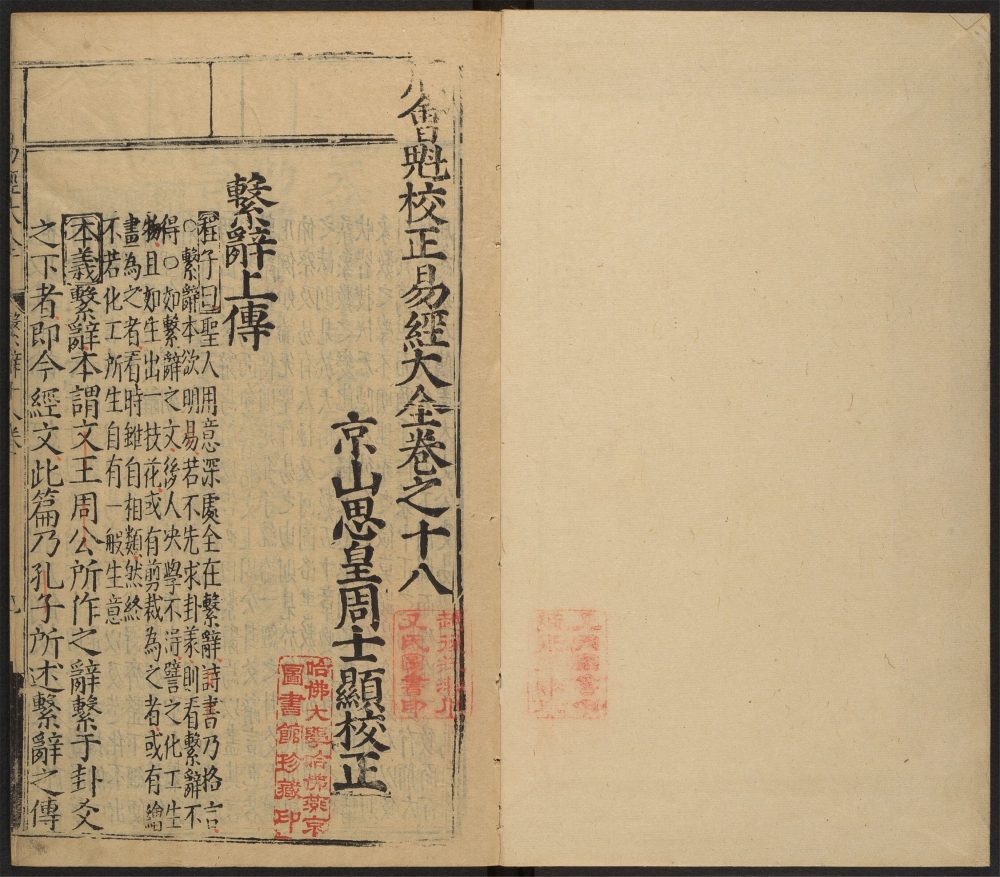 會魁校正易經大全卷之十八
京山思皇周士顯校正
繫辭上傳
程子曰聖人用意深處全在繫辭詩書乃格言
○繫辭本欲明易若不先求卦義則看繫辭不
得○如繫辭之文後人決學不得譬之化工生
物且如生出一技花或有剪裁為之者或有繪
畫為之者看時雖自相類然終
不若化工所生自有一般生意
本義繫辭本謂文王周公所作之辭繫于卦爻
之下者即今經文此篇乃孔子所述繫辭之傳
哈佛大學哈佛燕京
圖書館珍藏印